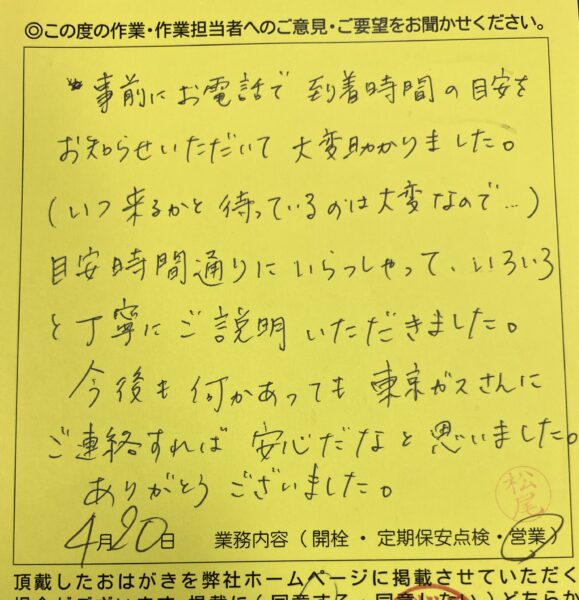 ◎この度の作業・作業担当者へのご意見・ご要望をお聞かせください。
事前にお電話で 到着時間の目安を
お知らせいただいて 大変助かりました。
(いつ来るかと待っているのは大変なので…)
目安時間通りにいらっしゃって、いろいろ
と丁寧にご説明いただきました。
今後も何かあっても東京ガスさんに
ご連絡すれば 安心だなと思いました。
ありがとうございました。
松尾
4月20日 業務内容(開栓・定期保安点検・営業)
頂戴したおはがきを弊社ホームページに掲載させていただく